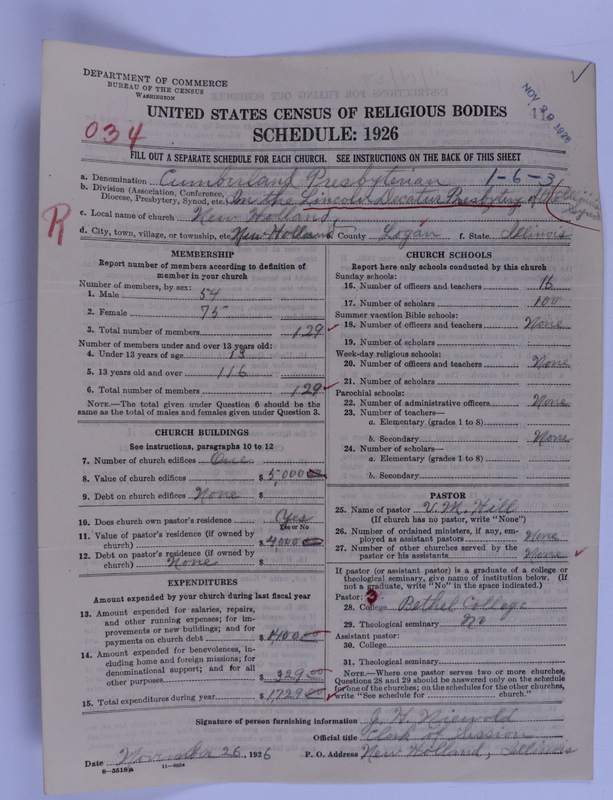 DEPARTMENT OF COMMERCE
BUREAU OF THE CENSUS
WASHINGTON
NOV 29 1926
UNITED STATES CENSUS OF RELIGIOUS BODIES
SCHEDULE: 1926
034
FILL OUT A SEPARATE SCHEDULE FOR EACH CHURCH. SEE INSTRUCTIONS ON THE BACK OF THIS SHEET
a. Denomination Cumberland Presbyterian 1-6-3
b. Division (Association, Conference, Diocese, Presbytery, Synod, etc.) In the Lincoln Decatur Presbytery of
R
c. Local name of church New Holland
d. City, town, village, or township, etc. New Holland County Logan f. State Illinois
MEMBERSHIP
Report number of members according to definition of
member in your church
Number of members, by sex:
1. Male 54
2. Female 75
3. Total number of members 129
Number of members under and over 13 years old:
4. Under 13 years of age 13
5. 13 years old and over 116
6. Total number of members 129
NOTE.—The total given under Question 6 should be the
same as the total of males and females given under Question 3.
CHURCH BUILDINGS
See instructions, paragraphs 10 to 12
7. Number of church edifices One
8. Value of church edifices $ 5,000 00
9. Debt on church edifices None $
10. Does church own pastor's residence Yes
Yes or No
11. Value of pastor's residence (if owned by
church) $ 4000 00
12. Debt on pastor's residence (if owned by
church) None $
EXPENDITURES
Amount expended by your church during last fiscal year
13. Amount expended for salaries, repairs,
and other running expenses; for im-
provements or new buildings; and for
payments on church debt $ 1400 00
14. Amount expended for benevolences, in-
cluding home and foreign missions; for
denominational support; and for all
other purposes $ 329 00
15. Total expenditures during year $ 1729 00
CHURCH SCHOOLS
Report here only schools conducted by this church
Sunday schools:
16. Number of officers and teachers 16
17. Number of scholars 100
Summer vacation Bible schools:
18. Number of officers and teachers None
19. Number of scholars
Week-day religious schools:
20. Number of officers and teachers None
21. Number of scholars
Parochial schools:
22. Number of administrative officers None
23. Number of teachers—
a. Elementary (grades 1 to 8)
b. Secondary None
24. Number of scholars—
a. Elementary (grades 1 to 8)
b. Secondary
PASTOR
25. Name of pastor V. M. Hill
(If church has no pastor, write "None")
26. Number of ordained ministers, if any, em-
ployed as assistant pastors None
27. Number of other churches served by the
pastor or his assistants None
If pastor (or assistant pastor) is a graduate of a college or
theological seminary, give name of institution below. (If
not a graduate, write "No" in the space indicated.)
Pastor:
28. College Bethel College
29. Theological seminary No
Assistant pastor:
30. College
31. Theological seminary
NOTE.—Where one pastor serves two or more churches,
Questions 28 and 29 should be answered only on the schedule
for one of the churches; on the schedules for the other churches,
write "See schedule for church."
Signature of person furnishing information
Official title Clerk of Session
Date November 26, 1926 P. O. Address New Holland, Illinois